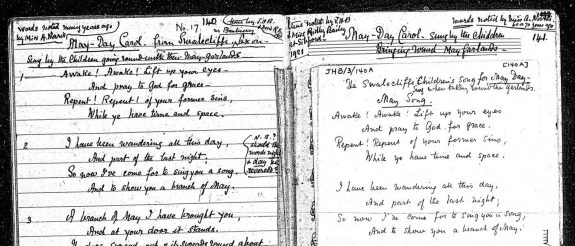 words noted many years ago
by Miss A. Norris
No. 17
140
May-Day Carol. from Swalecliffe, Oxon.
Sung by the Children going round with their May-Garlands
1
Awake! Awake! Lift up your eyes
And pray to God for grace
Repent! Repent! of your former sins,
While ye have time and space.
2
I have been wandering all this day,
And part of the last night,
So now I've come for to sing you a song,
And to show you a branch of May.
N.B.?
should the
words night
& day be
reversed?
3
A branch of May I have brought you,
And at your door it stands.
1921
May-Day Carol. Sung by the Children
Bringing round May Garlands.
words noted by Miss A. Norris
141.
JHB/3/140A
[140A]
The Swalecliffe Children's Song for May Day
Sung when taking round the garlands.
May Song.
Awake! Awake! Lift up your eyes
And pray to God for grace.
Repent! Repent of your former sins,
While ye have time and space.
I have been wandering all this day,
And part of the last night;
So now I'm come for to sing you a song,
And to show you a branch of May.